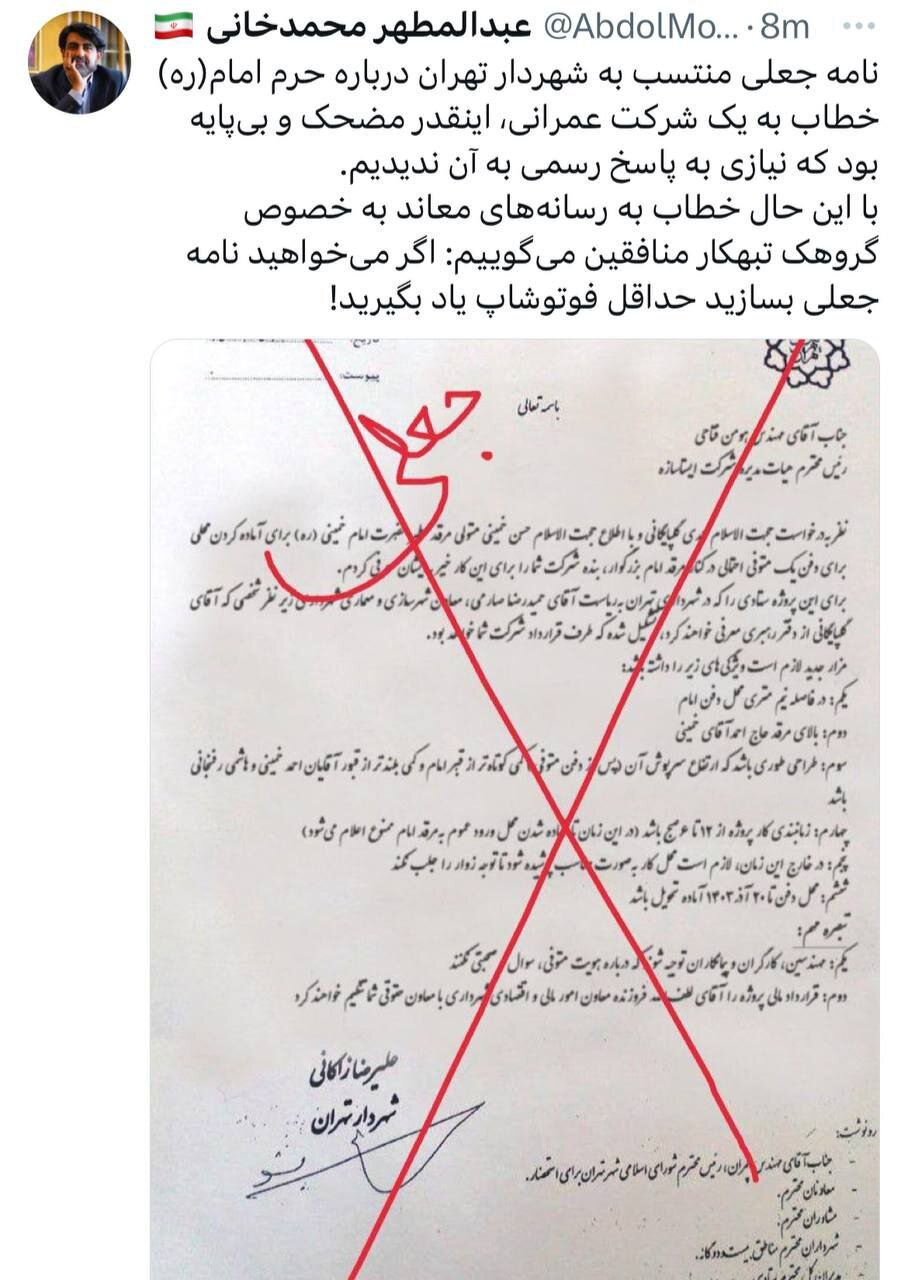 عبدالمطهر محمدخانی 🇮🇷 @AbdolMo... · 8m
نامه جعلی منتسب به شهردار تهران درباره حرم امام(ره)
خطاب به یک شرکت عمرانی، اینقدر مضحک و بی‌پایه
بود که نیازی به پاسخ رسمی به آن ندیدیم.
با این حال خطاب به رسانه‌های معاند به خصوص
گروهک تبهکار منافقین می‌گوییم: اگر می‌خواهید نامه
جعلی بسازید حداقل فوتوشاپ یاد بگیرید!
تاریخ:
پیوست:
باسمه تعالی
جعلی
جناب آقای مهندس هومن فتاحی
رئیس محترم هیات مدیره شرکت ایستاسازه
نظر به درخواست حجت الاسلام گلپایگانی و با اطلاع حجت الاسلام حسن خمینی متولی مرقد حضرت امام خمینی (ره) برای آماده کردن محلی
برای دفن یک متوفی احتمالی در کنار مرقد امام بزرگوار، بنده شرکت شما را برای این کار خیر به ایشان معرفی کردم.
برای این پروژه ستادی را که در شهرداری تهران به ریاست آقای حمیدرضا صارمی، معاون شهرسازی و معماری شهرداری زیر نظر شخصی که آقای
گلپایگانی از دفتر رهبری معرفی خواهند کرد، تشکیل شده که طرف قرارداد شرکت شما خواهد بود.
مزار جدید لازم است ویژگی‌های زیر را داشته باشد:
یکم: در فاصله نیم متری محل دفن امام
دوم: بالای مرقد حاج احمد آقای خمینی
سوم: طراحی طوری باشد که ارتفاع سرپوش آن (پس از دفن متوفی) کمی کوتاه‌تر از قبر امام و کمی بلندتر از قبور آقایان احمد خمینی و هاشمی رفسنجانی
باشد
چهارم: زمانبندی کار پروژه از ۱۲ تا ۶ صبح باشد (در این زمان تا آماده شدن محل ورود عموم به مرقد امام ممنوع اعلام می‌شود)
پنجم: در خارج این زمان، لازم است محل کار به صورت مناسب پوشیده شود تا توجه زوار را جلب نکند
ششم: محل دفن تا ۲۰ آذر ۱۴۰۳ آماده تحویل باشد
تبصره مهم:
یکم: مهندسین، کارگران و پیمانکاران توجیه شوند که درباره هویت متوفی، سوال و صحبتی نکنند
دوم: قرارداد مالی پروژه را آقای لطف‌اله فروزنده معاون امور مالی و اقتصادی شهرداری با معاون حقوقی شما تنظیم خواهند کرد
علیرضا زاکانی
شهردار تهران
رونوشت:
- جناب آقای مهندس چمران، رئیس محترم شورای اسلامی شهر تهران برای استحضار.
- معاونان محترم.
- مشاوران محترم.
- شهرداران محترم مناطق بیست و دو گانه.